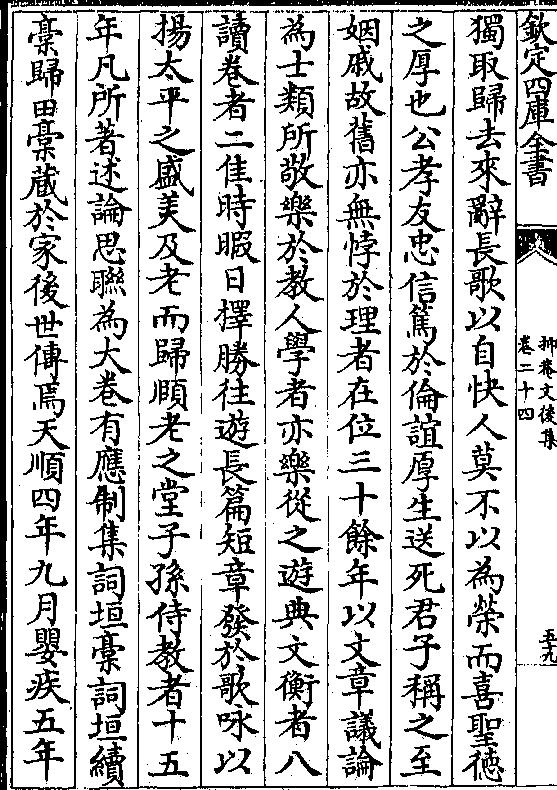 欽定四庫全書
抑菴文後集
卷二十四
五九
獨取歸去來辭長歌以自快人莫不以為榮而喜聖徳
之厚也公孝友忠信篤於倫誼厚生送死君子稱之至
姻戚故舊亦無悖於理者在位三十餘年以文章議論
為士類所敬樂於教人學者亦樂從之遊典文衡者八
讀卷者二佳時暇日擇勝往遊長篇短章發於歌咏以
揚太平之盛美及老而歸頤老之堂子孫侍教者十五
年凡所著述論思聯為大卷有應制集詞垣稾詞垣續
稾歸田稾蔵於家後世傳焉天順四年九月嬰疾五年